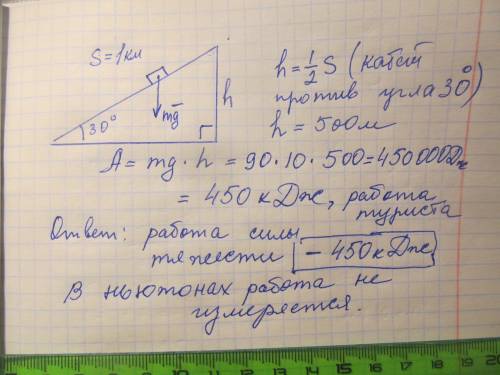 S=1км
h
30°
mg
h=½S (катет
против угла 30°)
h = 500м
A= mg·h = 90·10·500=450000Дж
= 450 кДж, работа
туриста
Ответ: работа силы
тяжести -450кДж
В ньютонах работа не
измеряется.
1 2 3 4 5 6 7 8 9 10 11 12 13 14 15 16 17 18 19 20